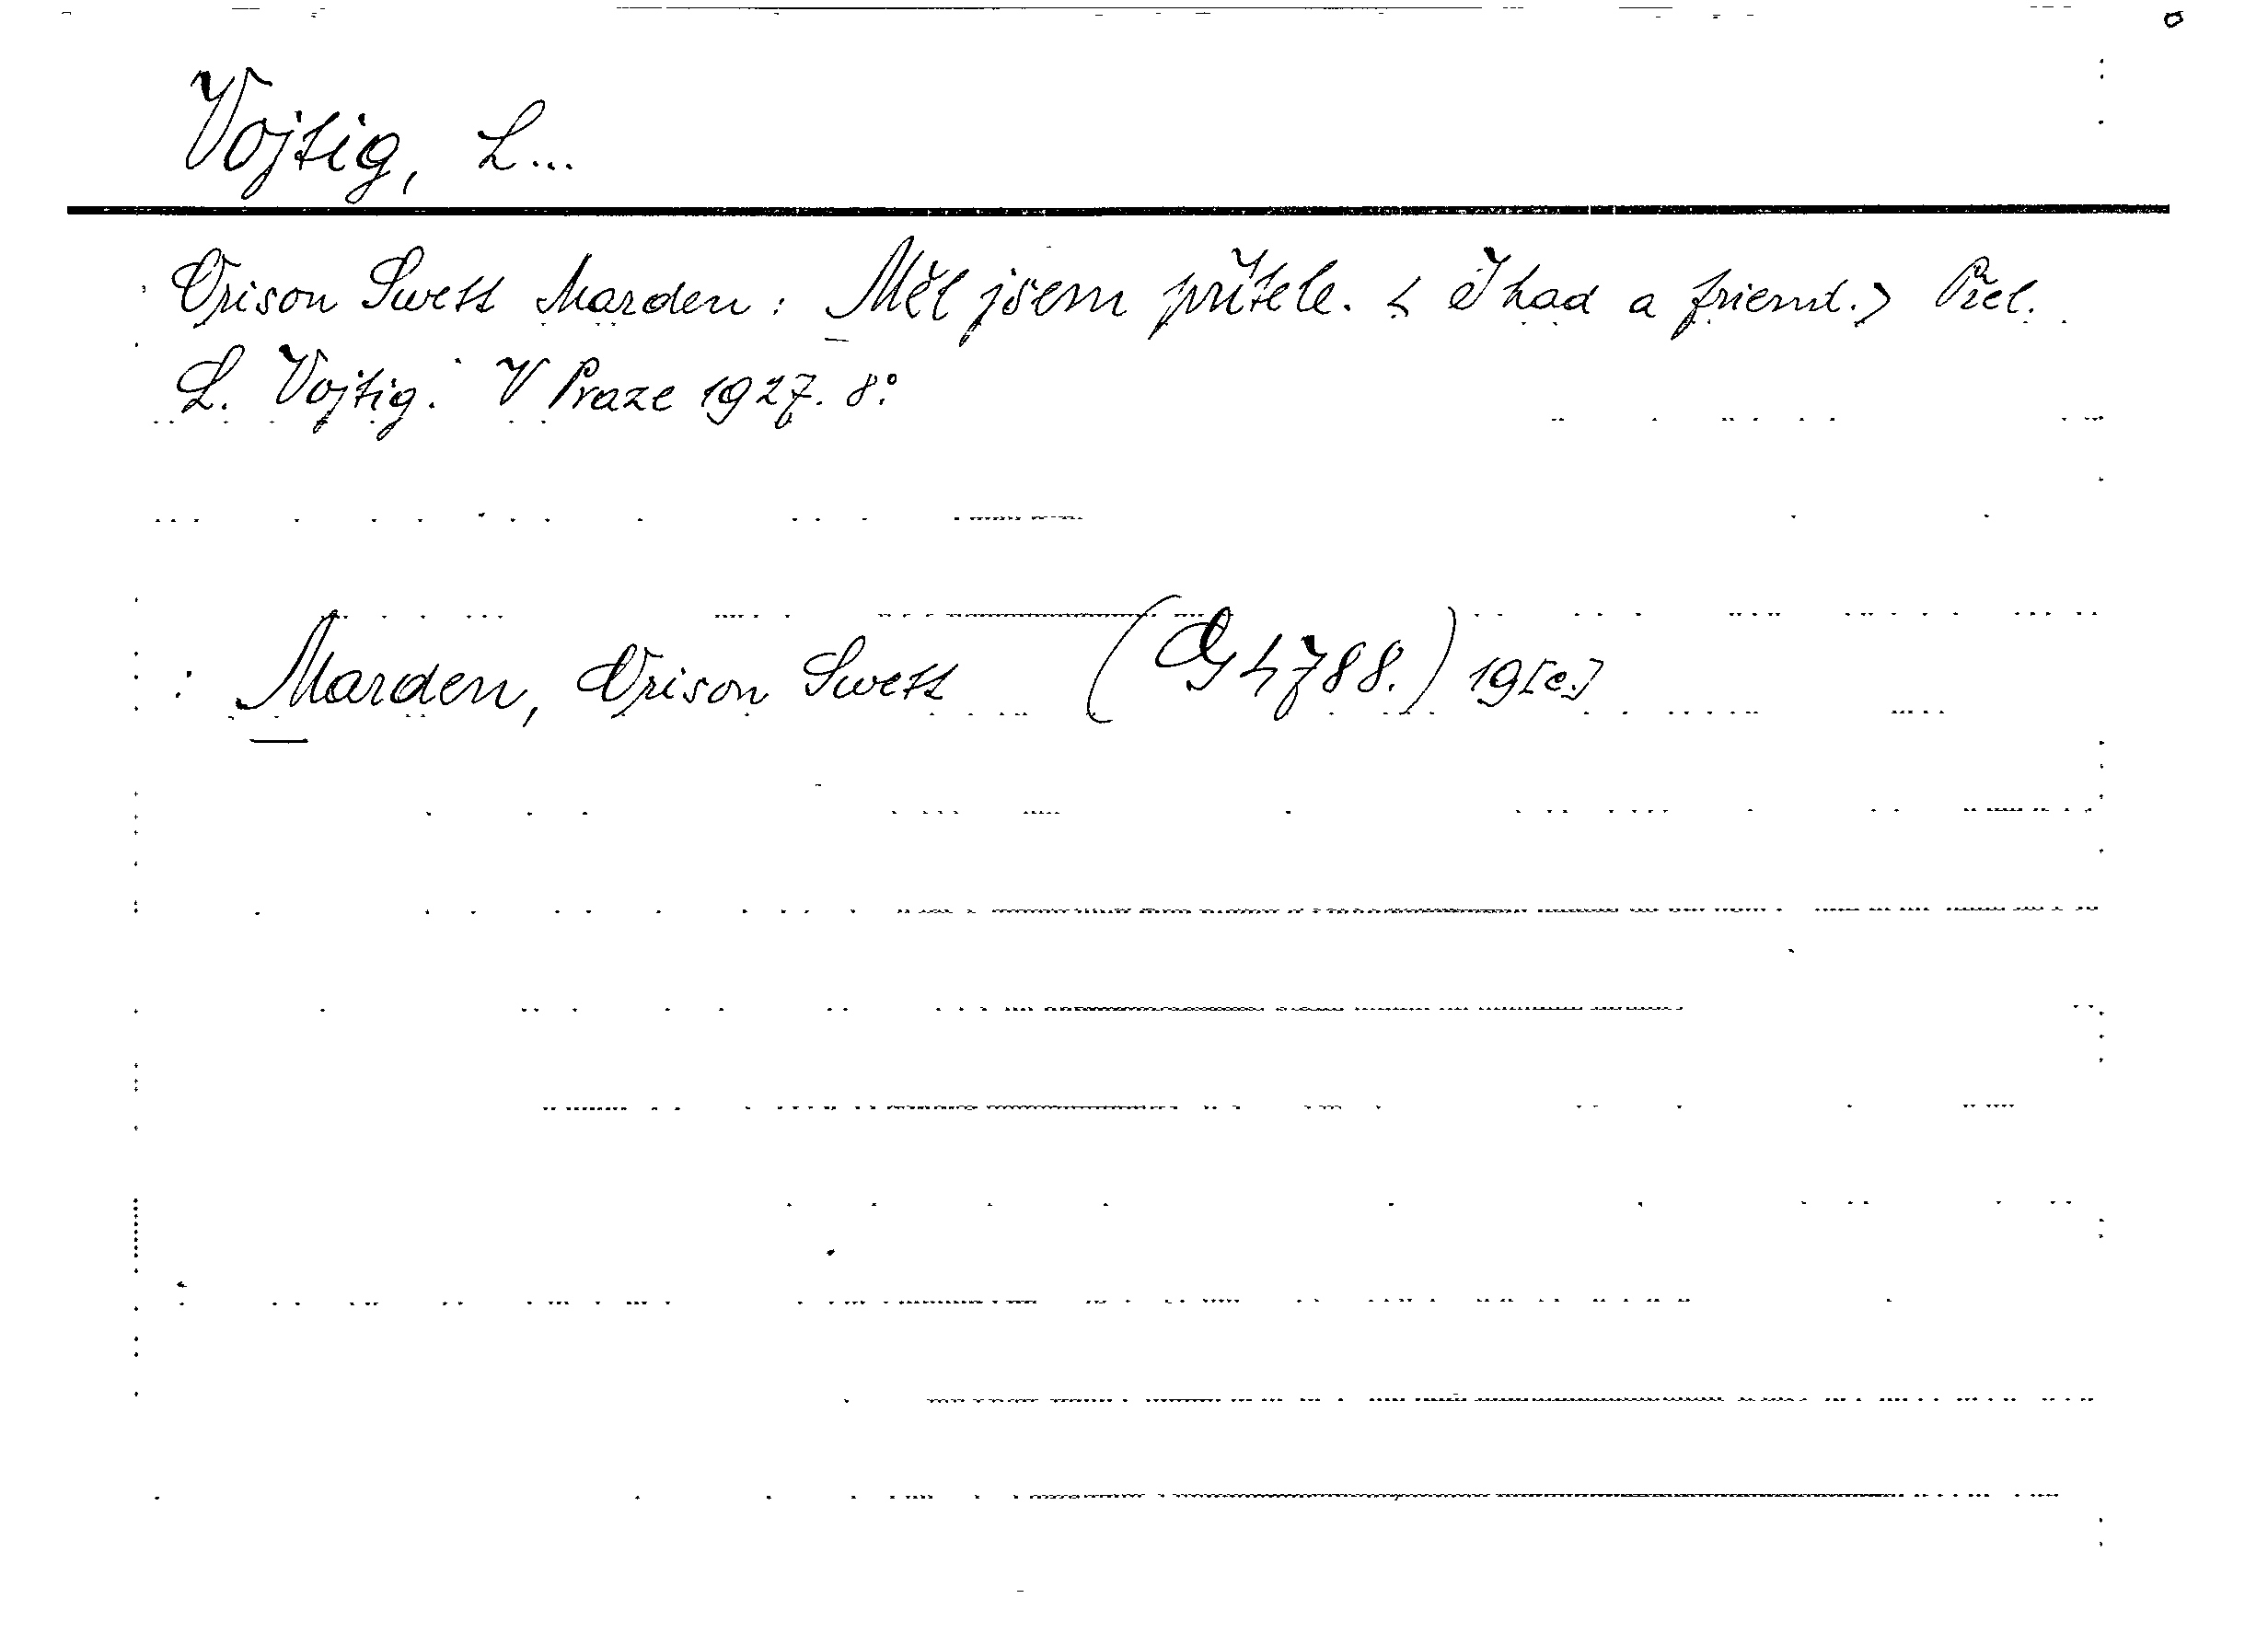 Vojtig, L...
Orison Swett Marden: Měl jsem přítele. < I had a friend.> Přel.
L. Vojtig. V Praze 1927. 8°
: Marden, Orison Swett ( 4788.) 19[e.]